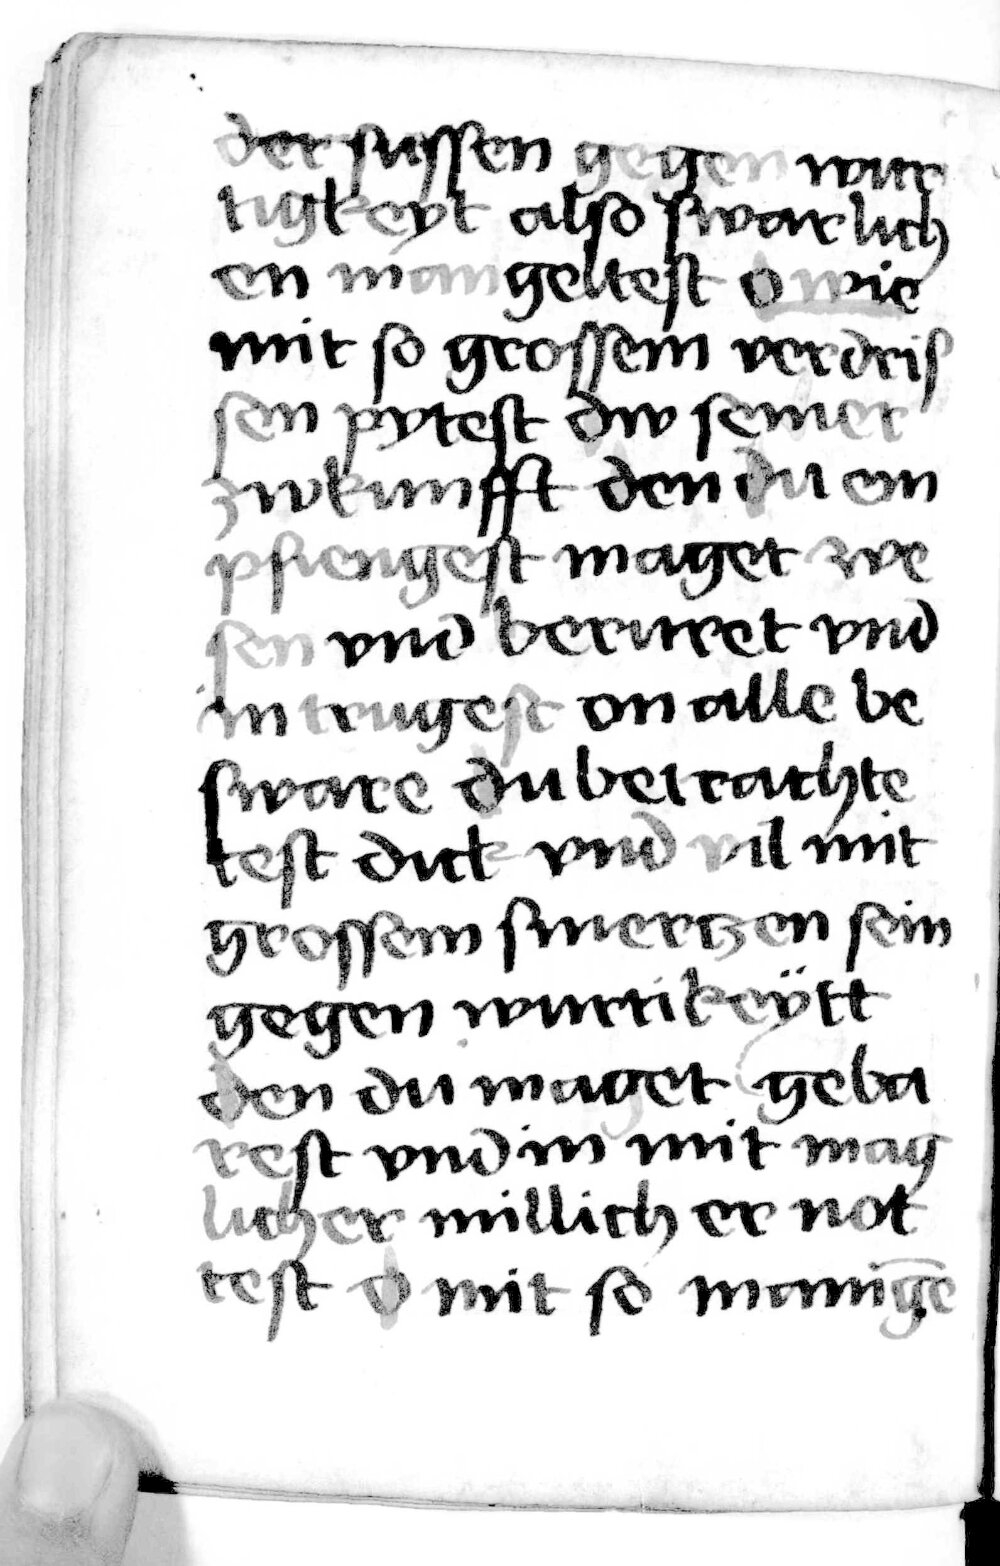 der sussen gegen wur
tigkeyt also swarlich
en mangeltest o wie
mit so grossem verdris
sen pytest dw seiner
zwkunfft den du em
pfiengest maget we
sen vnd beruret vnd
in trugest on alle be
sware du betrachte
test dick vnd vil mit
grossem smertzen sein
gegen wurtikeÿtt
den du maget geba
rest vnd in mit mag
licher millich er not
test o mit so manige